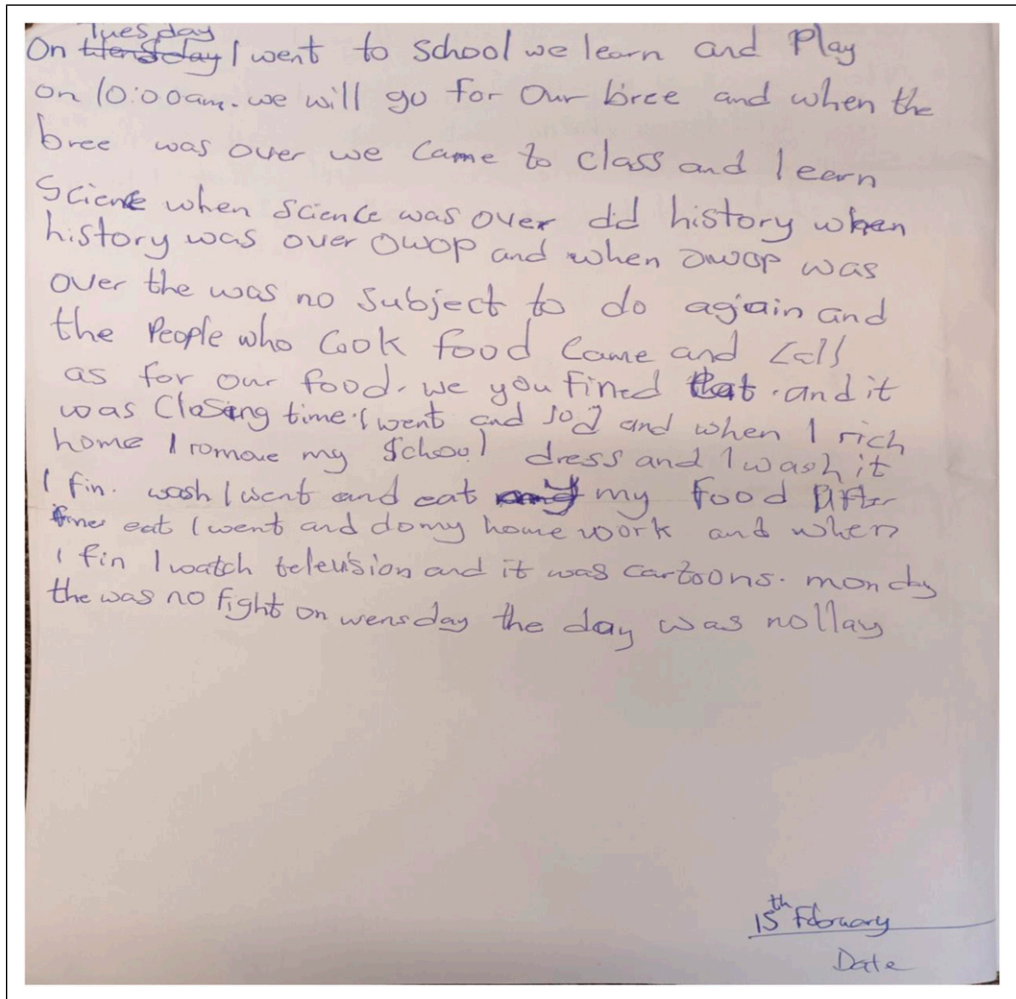 Tuesday
On I went to school we learn and Play
on 10:00am. we will go for our bree and when the
bree was over we came to class and learn
Science when science was over did history when
history was over OWOP and when OWOP was
over the was no subject to do agian and
the People who Cook food came and call
as for our food. we you fined that. and it
was Closing time. I went and and when I rich
home I romove my school dress and I wash it
I fin. wash I went and eat my food After
eat I went and do my home work and when
I fin I watch television and it was cartoons. monday
the was no fight on wensday the day was
15th February
Date